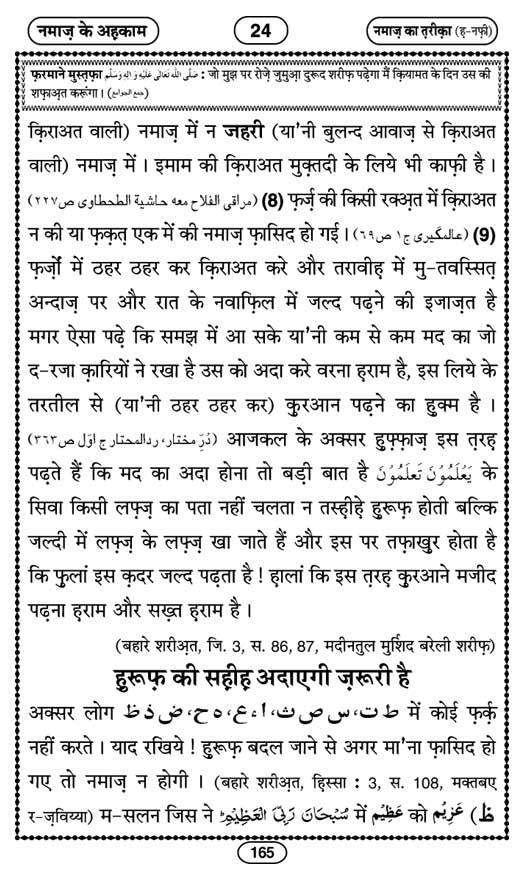 नमाज़ के अहकाम
24
नमाज़ का तरीक़ा (ह-नफ़ी)
फ़रमाने मुस्तफ़ा صَلَّى اللهُ تَعَالٰى عَلَيْهِ وَاٰلِهٖ وَسَلَّم : जो मुझ पर रोज़े जुमुआ़ दुरूद शरीफ़ पढ़ेगा मैं क़ियामत के दिन उस की
शफ़ाअ़त करूंगा। (جمع الجوامع)
क़िराअत वाली) नमाज़ में न जहरी (या'नी बुलन्द आवाज़ से क़िराअत
वाली) नमाज़ में । इमाम की क़िराअत मुक़्तदी के लिये भी काफ़ी है ।
(مراقی الفلاح معه حاشية الطحطاوی ص٢٢٧) (8) फ़र्ज़ की किसी रक्अ़त में क़िराअत
न की या फ़क़त़ एक में की नमाज़ फ़ासिद हो गई । (عالمگیری ج١ ص٦٩) (9)
फ़र्ज़ों में ठहर ठहर कर क़िराअत करे और तरावीह़ में मु-तवस्सित़
अन्दाज़ पर और रात के नवाफ़िल में जल्द पढ़ने की इजाज़त है
मगर ऐसा पढ़े कि समझ में आ सके या'नी कम से कम मद का जो
द-रजा क़ारियों ने रखा है उस को अदा करे वरना ह़राम है, इस लिये के
तरतील से (या'नी ठहर ठहर कर) क़ुरआन पढ़ने का हुक्म है ।
(دُرِّ مختار، ردالمحتار ج اوّل ص٣٦٣) आजकल के अक्सर हुफ़्फ़ाज़ इस त़रह़
पढ़ते हैं कि मद का अदा होना तो बड़ी बात है يَعْلَمُوْنَ تَعْلَمُوْنَ के
सिवा किसी लफ़्ज़ का पता नहीं चलता न तस्ह़ीहे़ हुरूफ़ होती बल्कि
जल्दी में लफ़्ज़ के लफ़्ज़ खा जाते हैं और इस पर तफ़ाखुर होता है
कि फ़ुलां इस क़दर जल्द पढ़ता है ! ह़ालां कि इस त़रह़ क़ुरआने मजीद
पढ़ना ह़राम और सख़्त ह़राम है ।
(बहारे शरीअ़त, जि. 3, स. 86, 87, मदीनतुल मुर्शिद बरेली शरीफ़)
हुरूफ़ की सह़ीह़ अदाएगी ज़रूरी है
अक्सर लोग ط ت، س ص ث، ا ء ع، ہ ح، ض ذ ظ में कोई फ़र्क़
नहीं करते । याद रखिये ! हुरूफ़ बदल जाने से अगर मा'ना फ़ासिद हो
गए तो नमाज़ न होगी । (बहारे शरीअ़त, हि़स्सा : 3, स. 108, मक्तबए
र-ज़विय्या) म-सलन जिस ने سُبْحَانَ رَبِّيَ الْعَظِيْم में عَظِيْم को عَزِيْم (ظ
165